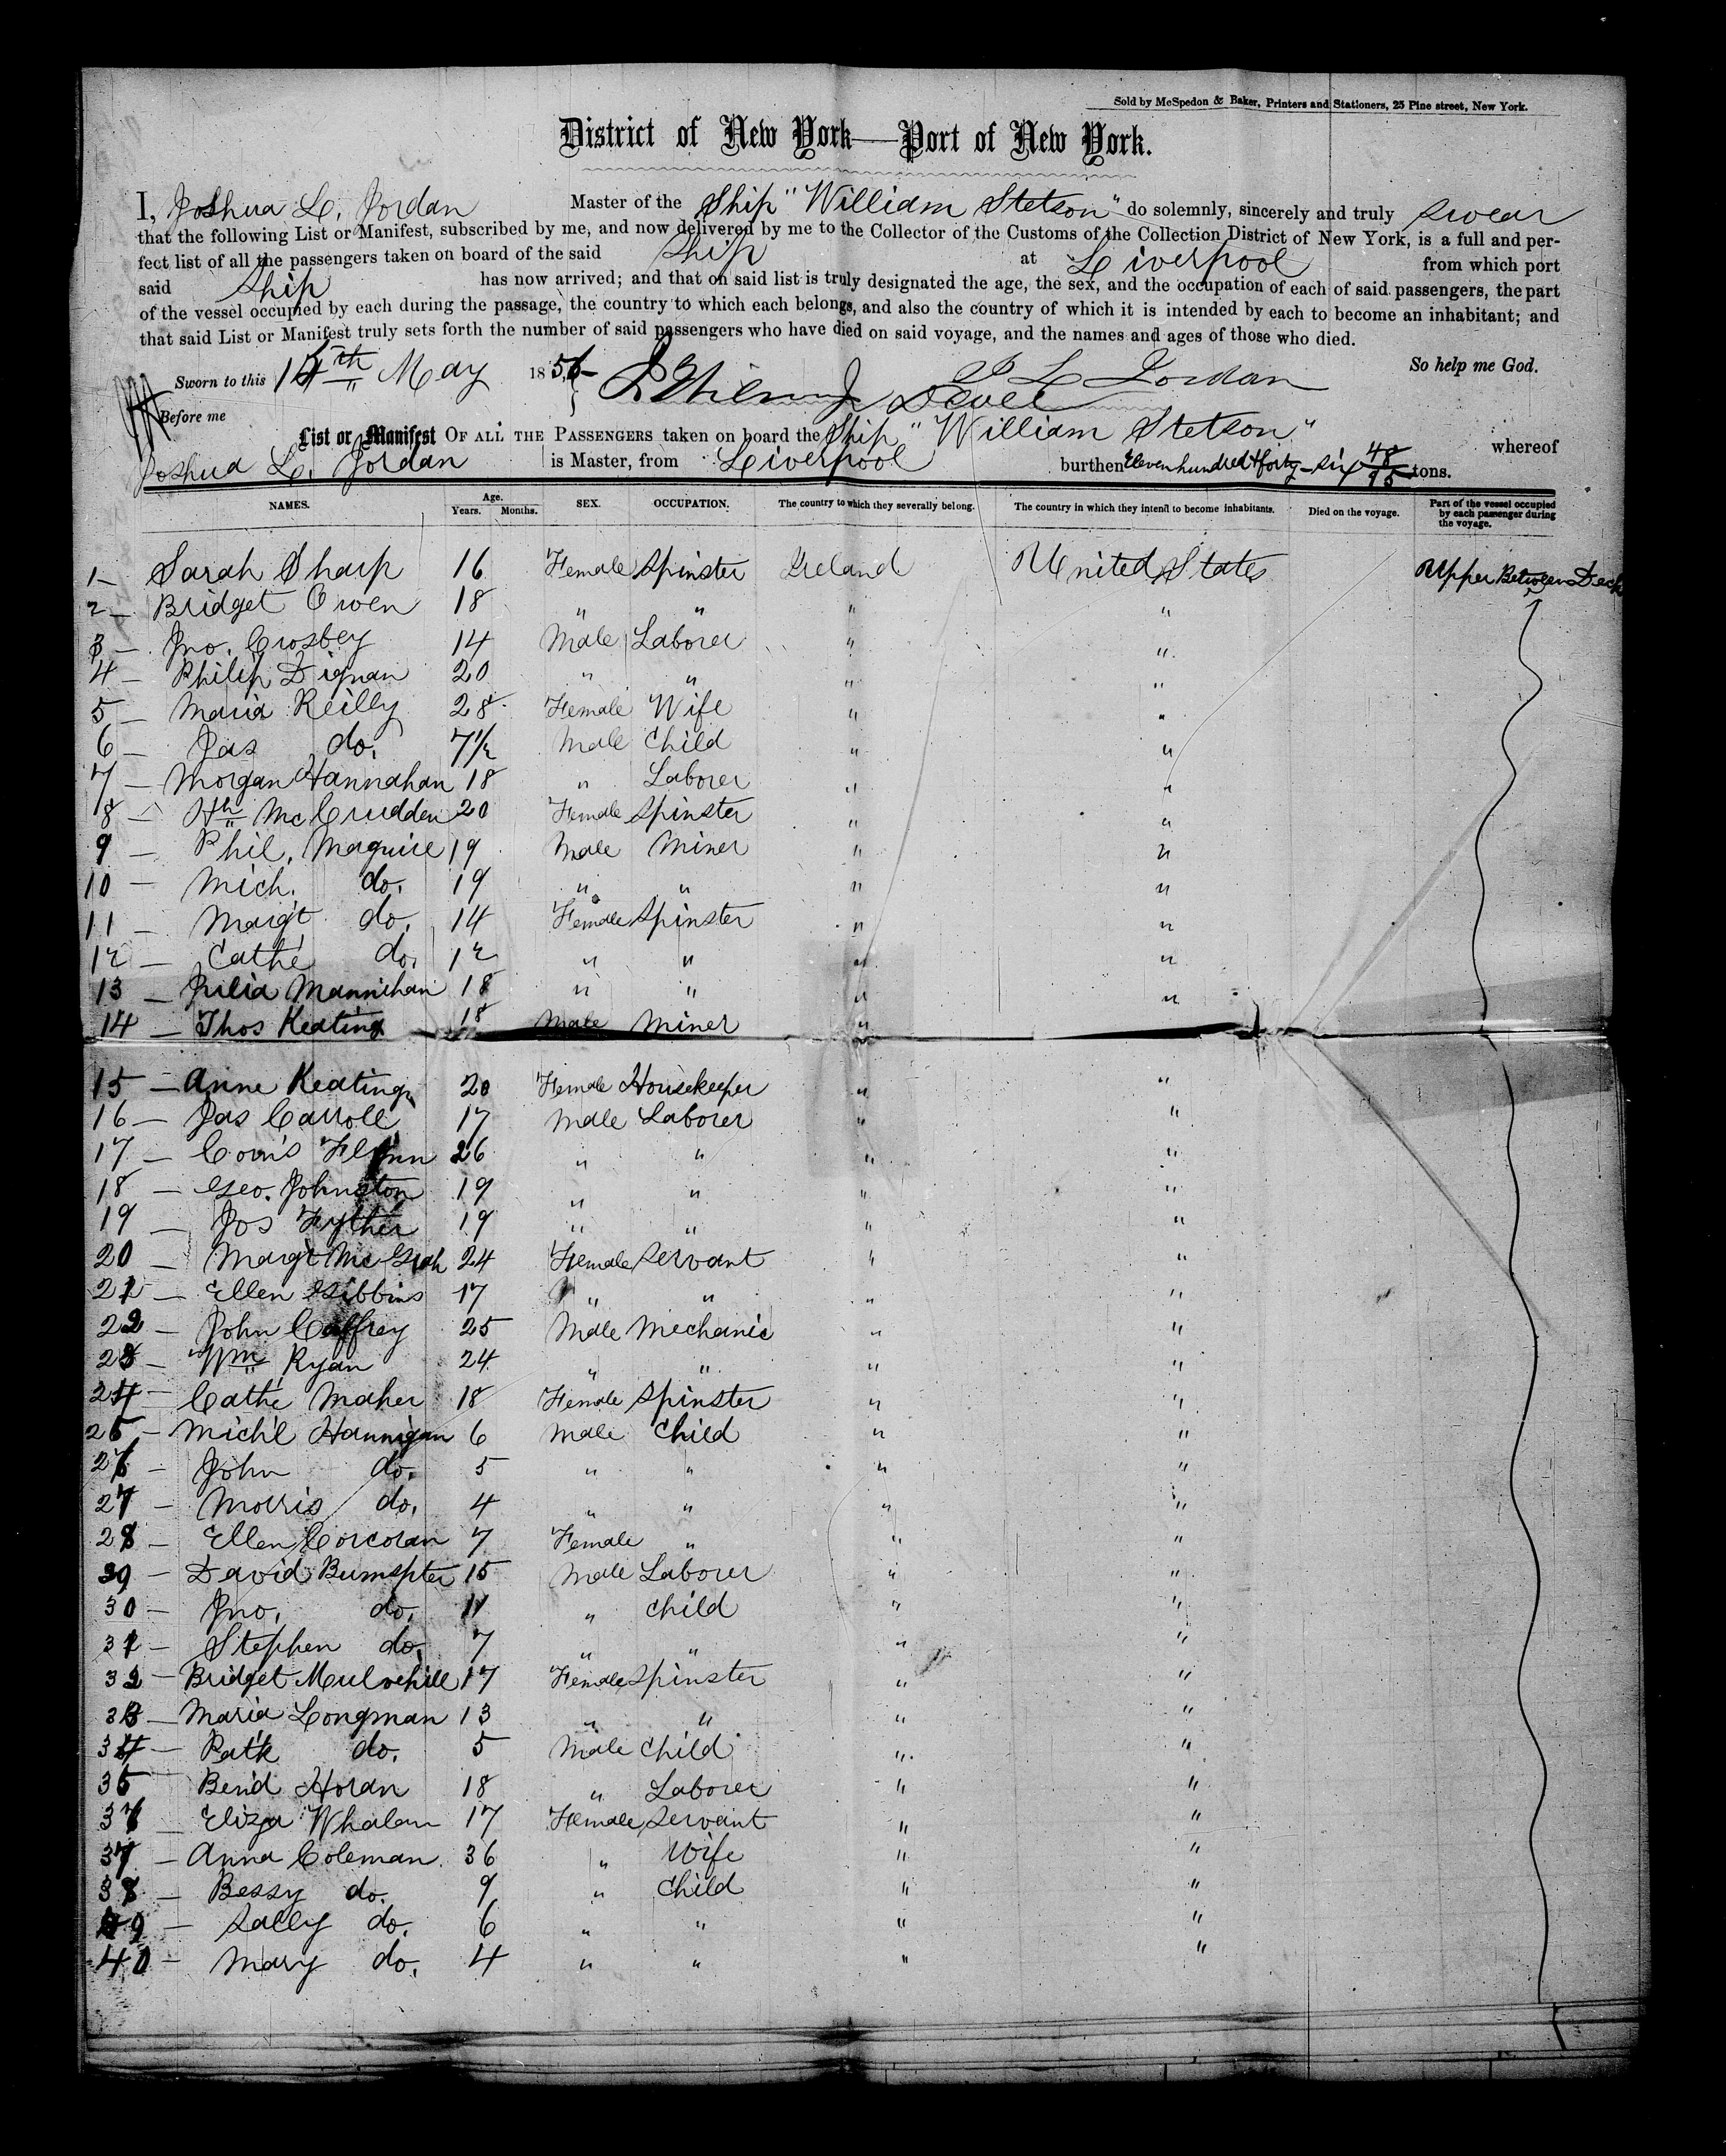 Sold by McSpedon & Baker, Printers and Stationers, 25 Pine street, New York.
District of New York—Port of New York.
I, Joshua L. Jordan Master of the Ship "William Stetson" do solemnly, sincerely and truly swear
that the following List or Manifest, subscribed by me, and now delivered by me to the Collector of the Customs of the Collection District of New York, is a full and per-
fect list of all the passengers taken on board of the said Ship at Liverpool from which port
said Ship has now arrived; and that on said list is truly designated the age, the sex, and the occupation of each of said passengers, the part
of the vessel occupied by each during the passage, the country to which each belongs, and also the country of which it is intended by each to become an inhabitant; and
that said List or Manifest truly sets forth the number of said passengers who have died on said voyage, and the names and ages of those who died.
So help me God.
Sworn to this May 1856 J L Jordan
Before me
List or Manifest OF ALL THE PASSENGERS taken on board the Ship "William Stetson" whereof
Joshua L. Jordan is Master, from Liverpool burthen Eleven hundred & forty-six 48/95 tons.
NAMES. Age. Years. Months. SEX. OCCUPATION. The country to which they severally belong. The country in which they intend to become inhabitants. Died on the voyage. Part of the vessel occupied by each passenger during the voyage.
1 — Sarah Sharp 16 Female Spinster Ireland United States Upper Between Deck
2 — Bridget Owen 18 " " " "
3 — Jno. Crosbey 14 Male Laborer " "
4 — Philip Dignan 20 " " " "
5 — Maria Reilly 28 Female Wife " "
6 — Jas do. 7½ Male Child " "
7 — Morgan Hannahan 18 " Laborer " "
8 — Hh McCrudden 20 Female Spinster " "
9 — Phil. Maguire 19 Male Miner " "
10 — Mich. do. 19 " " " "
11 — Margt do. 14 Female Spinster " "
12 — Cathe do. 12 " " " "
13 — Julia Mannihan 18 " " " "
14 — Thos Keating 18 Male Miner "
15 — Anne Keating 20 Female Housekeeper " "
16 — Jas Carroll 17 Male Laborer " "
17 — Flynn 26 " " " "
18 — Geo. Johnston 19 " " " "
19 — Jos 19 " " " "
20 — Margt McGrah 24 Female Servant " "
21 — Ellen Gibbins 17 " " " "
22 — John Caffrey 25 Male Mechanic " "
23 — Wm Ryan 24 " " " "
24 — Cathe Maher 18 Female Spinster " "
25 — Mich'l Hannigan 6 Male Child " "
26 — John do. 5 " " " "
27 — Morris do. 4 " " " "
28 — Ellen Corcoran 7 Female " " "
29 — David Bumspter 15 Male Laborer " "
30 — Jno. do. 11 " Child " "
31 — Stephen do. 7 " " " "
32 — Bridget Mulvehill 17 Female Spinster " "
33 — Maria Longman 13 " " " "
34 — Patk do. 5 Male Child " "
35 Horan 18 " Laborer " "
36 — Eliza Whalan 17 Female Servant " "
37 — Anna Coleman 36 " Wife " "
38 — Bessy do. 9 " Child " "
39 — Sally do. 6 " " " "
40 — Mary do. 4 " " " "